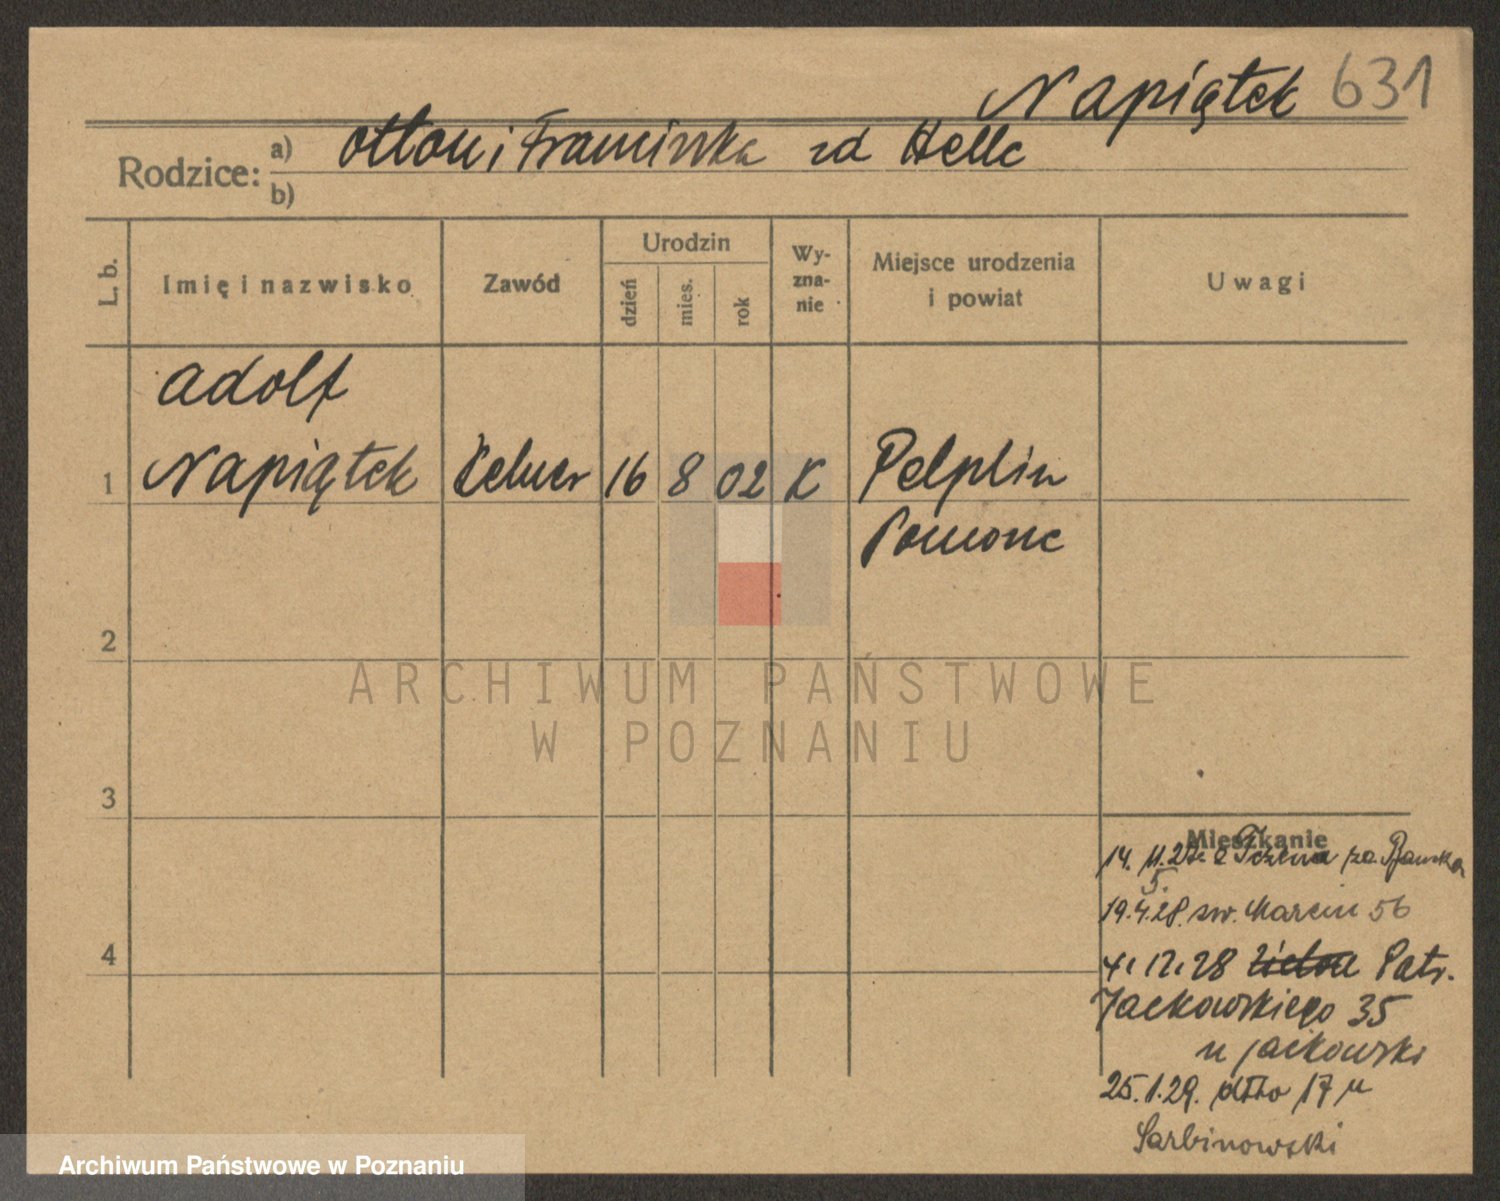 Napiątek 631
Rodzice: a) Otton i Franciszka zd Helle
b)
L. b.
Imię i nazwisko
Zawód
Urodzin
dzień
mies.
rok
Wy-
zna-
nie
Miejsce urodzenia
i powiat
Uwagi
Adolf
1 Napiątek Kelner 16 8 02 K Pelplin
Pomorze
2
ARCHIWUM PAŃSTWOWE
W POZNANIU
3
Mieszkanie
14. 11. z Tczewa
5.
19.4.28. św. Marcin 56
4.12.28 Patr.
Jackowskiego 35
u Jackowski
25.1.29. dtto 17 u
Sarbinowski
4
Archiwum Państwowe w Poznaniu